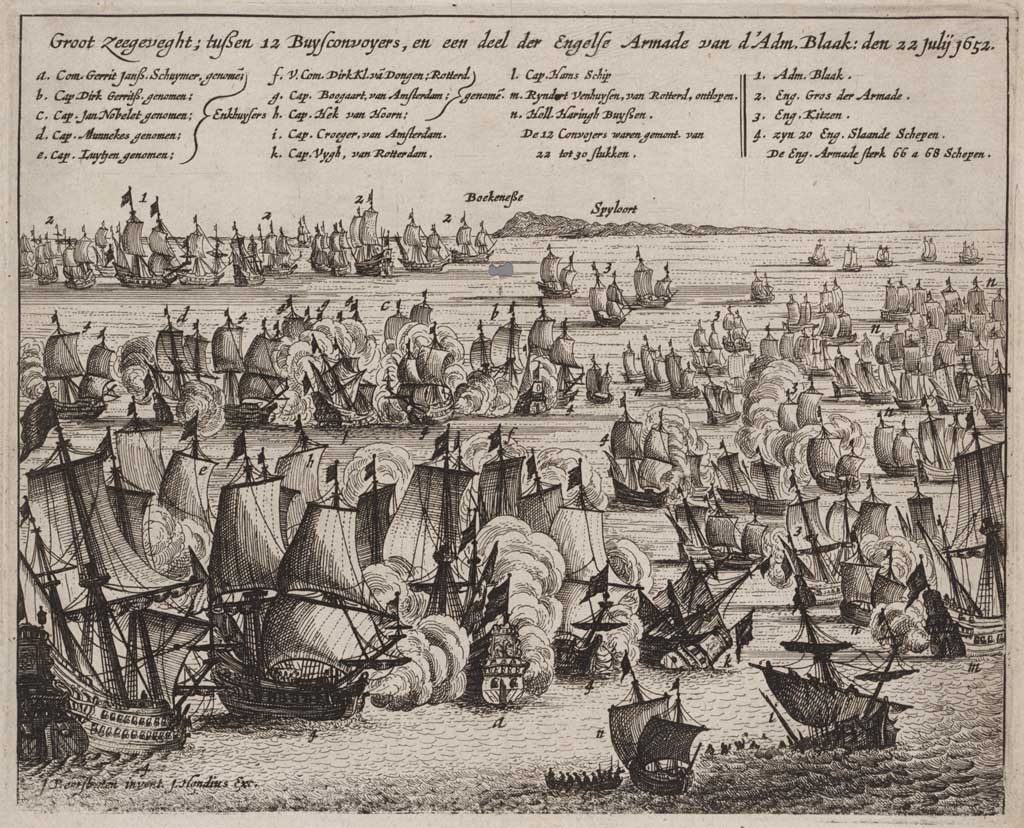 Groot Zeegeveght; tussen 12 Buysconvoyers, en een deel der Engelse Armade van d'Adm. Blaak: den 22 Julij 1652.
a. Com. Gerrit Janß. Schuymer, genomē;
b. Cap. Dirk Gerritß. genomen;
c. Cap. Jan Nobelot genomen;
d. Cap. Munnekes genomen;
e. Cap. Luytjen genomen;
Enkhuysers
f. V. Com. Dirk Kl. vā Dongen; Rotterd.
g. Cap. Boogaart, van Amsterdam;
h. Cap. Hek van Hoorn;
genomē.
i. Cap. Croeger, van Amsterdam.
k. Cap. Vygh, van Rotterdam.
l. Cap. Hans Schip
m. Ryndert Venhuysen, van Rotterd, ontlopen.
n. Holl. Haringh Buyssen.
De 12 Convojers waren gemont. van
22 tot 30 stukken.
1. Adm. Blaak.
2. Eng. Gros der Armade.
3. Eng. Kitzen.
4. zyn 20 Eng. Slaande Schepen.
De Eng. Armade sterk 66 a 68 Schepen.
Boekeneße
Spyloort
2 1 2 2 2
3
n
4 d 4 g g c b
3
n
e h
4
3
n
m
4
i
4 d
n l
4
invent. J. Hondius Exc.